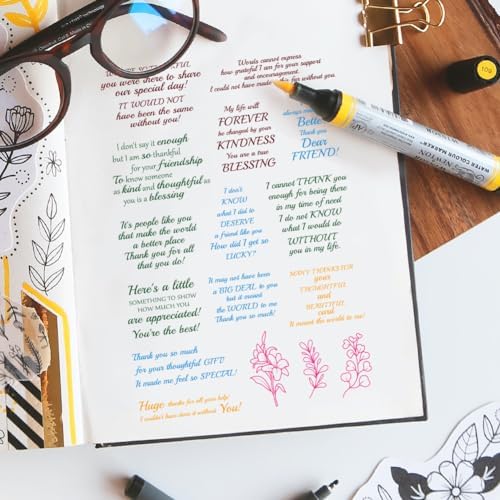 you were there to share
our special day!
IT WOULD NOT
have been the same
without you!
Words cannot express
how grateful I am for your support
and encouragement.
I could not have made this far without you
My life will
FOREVER
be changed by your
KINDNESS
You are a true
BLESSING
always
Bette
Thank you
Dear
FRIEND!
I don't say it enough
but I am so thankful
for your friendship
To know someone
as kind and thoughtful as
you is a blessing
I don't
KNOW
what I did to
DESERVE
a friend like you
How did I get so
LUCKY?
I cannot THANK you
enough for being there
in my time of need
I do not KNOW
what I would do
WITHOUT
you in my life.
It's people like you
that make the world
a better place
Thank you for all
that you do!
Here's a little
SOMETHING TO SHOW
HOW MUCH YOU
are appreciated!
You're the best!
It may not have been
a BIG DEAL to you
but it meant
the WORLD to me
Thank you so much!
MANY THANKS FOR
your
THOUGHTFUL
and
BEAUTIFUL
card
It meant the world to me!
Thank you so much
for your thoughtful GIFT!
It made me feel so SPECIAL!
Huge thanks for all your help!
I couldn't have done it without You!
NEWTON
WATER COLOUR MARKER